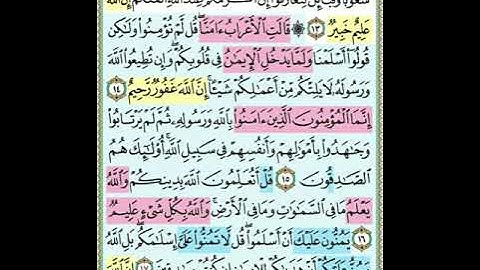 عَلِيمٌ خَبِيرٌ ١٣ ۞ قَالَتِ الْأَعْرَابُ ءَامَنَّا قُل لَّمْ تُؤْمِنُوا وَلَٰكِن
قُولُوا أَسْلَمْنَا وَلَمَّا يَدْخُلِ الْإِيمَٰنُ فِي قُلُوبِكُمْ وَإِن تُطِيعُوا اللَّهَ
وَرَسُولَهُ لَا يَلِتْكُم مِّنْ أَعْمَٰلِكُمْ شَيْـًٔا إِنَّ اللَّهَ غَفُورٌ رَّحِيمٌ ١٤
إِنَّمَا الْمُؤْمِنُونَ الَّذِينَ ءَامَنُوا بِاللَّهِ وَرَسُولِهِ ثُمَّ لَمْ يَرْتَابُوا
وَجَٰهَدُوا بِأَمْوَٰلِهِمْ وَأَنفُسِهِمْ فِي سَبِيلِ اللَّهِ أُولَٰئِكَ هُمُ
الصَّٰدِقُونَ ١٥ قُلْ أَتُعَلِّمُونَ اللَّهَ بِدِينِكُمْ وَاللَّهُ
يَعْلَمُ مَا فِي السَّمَٰوَٰتِ وَمَا فِي الْأَرْضِ وَاللَّهُ بِكُلِّ شَيْءٍ عَلِيمٌ
١٦ يَمُنُّونَ عَلَيْكَ أَنْ أَسْلَمُوا قُل لَّا تَمُنُّوا عَلَيَّ إِسْلَٰمَكُم بَلِ اللَّهُ